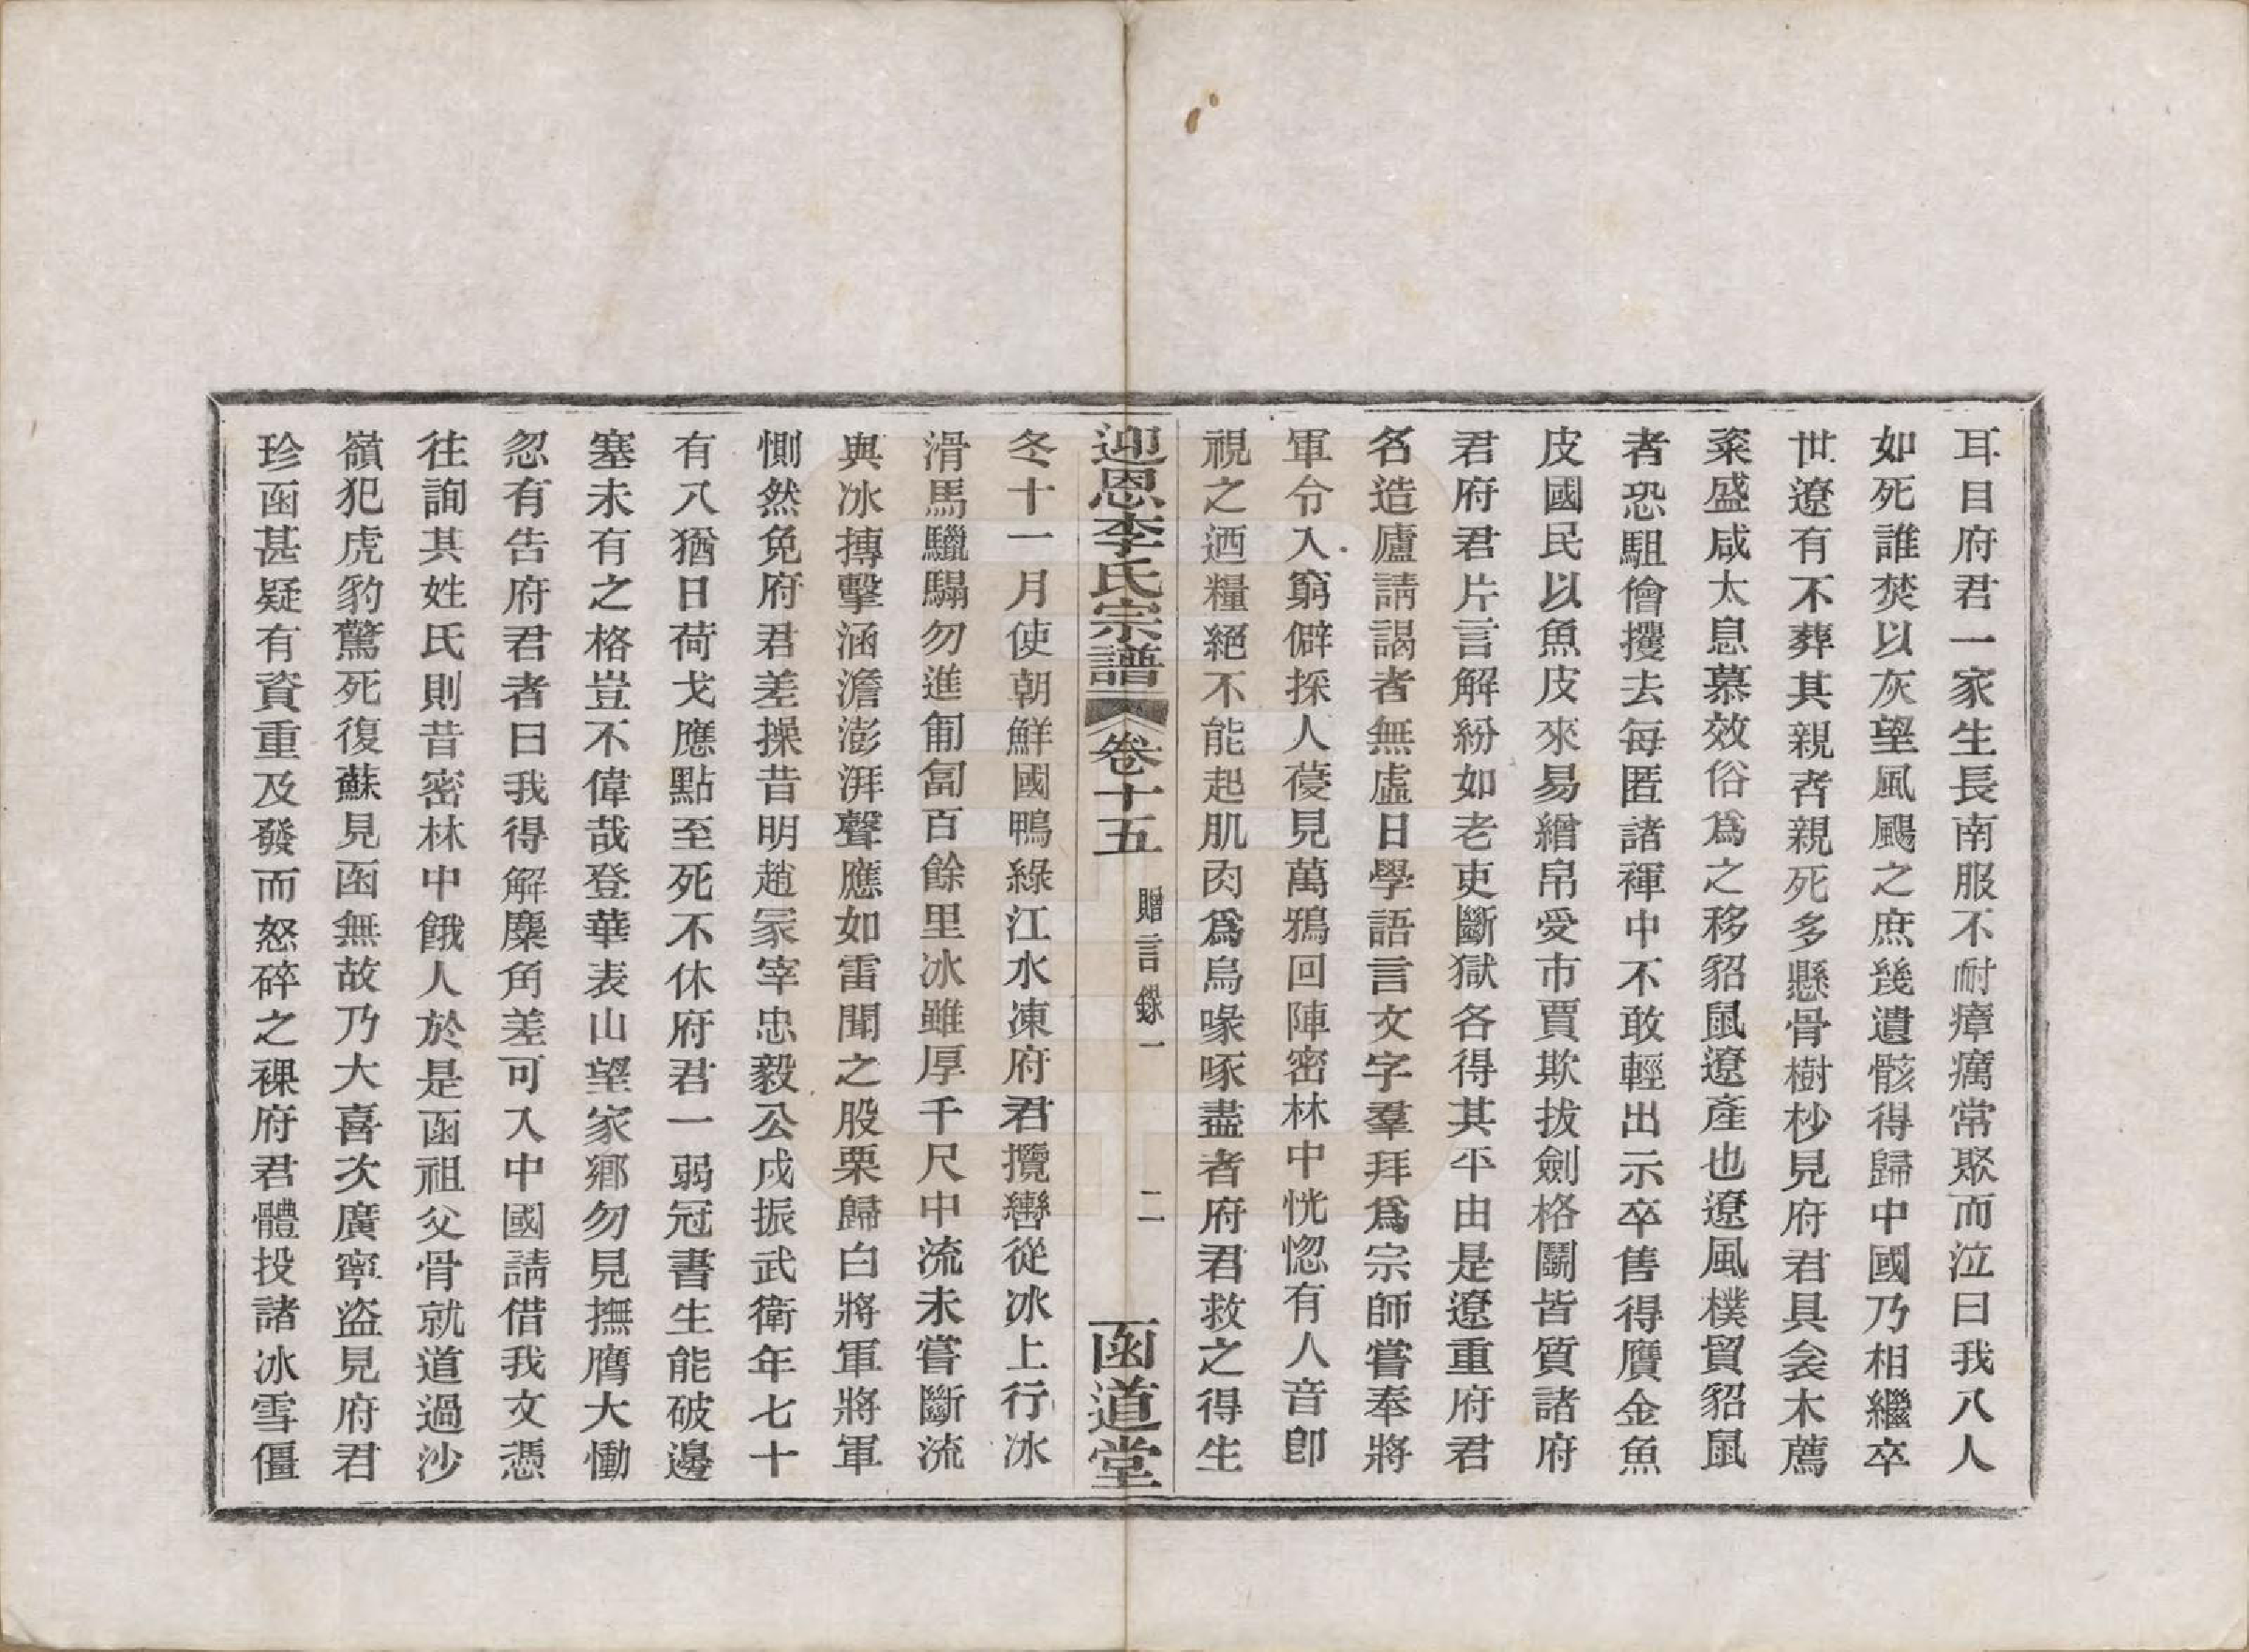 耳目府君一家生長南服不耐瘴癘常聚而泣曰我八人
如死誰焚以灰望風颺之庶幾遺骸得歸中國乃相繼卒
世遼有不葬其親者親死多懸骨樹杪見府君具衾木薦
粢盛咸太息慕效俗爲之移貂鼠遼產也遼風樸貿貂鼠
者恐駔儈攫去每匿諸褌中不敢輕出示卒售得贋金魚
皮國民以魚皮來易繒帛受市賈欺拔劍格鬭皆質諸府
君府君片言解紛如老吏斷獄各得其平由是遼重府君
名造廬請謁者無虛日學語言文字羣拜爲宗師嘗奉將
軍令入窮僻採人葠見萬鴉回陣密林中恍惚有人音卽
視之迺糧絕不能起肌肉爲烏喙啄盡者府君救之得生
迎恩李氏宗譜 卷十五 贈言錄一 二 函道堂
冬十一月使朝鮮國鴨綠江水凍府君攬轡從冰上行冰
滑馬驪騧勿進匍匐百餘里冰雖厚千尺中流未嘗斷流
與冰搏擊涵澹澎湃聲應如雷聞之股栗歸白將軍將軍
惻然免府君差操昔明趙冡宰忠毅公戍振武衛年七十
有八猶日荷戈應點至死不休府君一弱冠書生能破邊
塞未有之格豈不偉哉登華表山望家鄉勿見撫膺大慟
忽有告府君者曰我得解麋角差可入中國請借我文憑
往詢其姓氏則昔密林中餓人於是函祖父骨就道過沙
嶺犯虎豹驚死復蘇見函無故乃大喜次廣寧盜見府君
珍函甚疑有資重及發而怒碎之裸府君體投諸冰雪僵